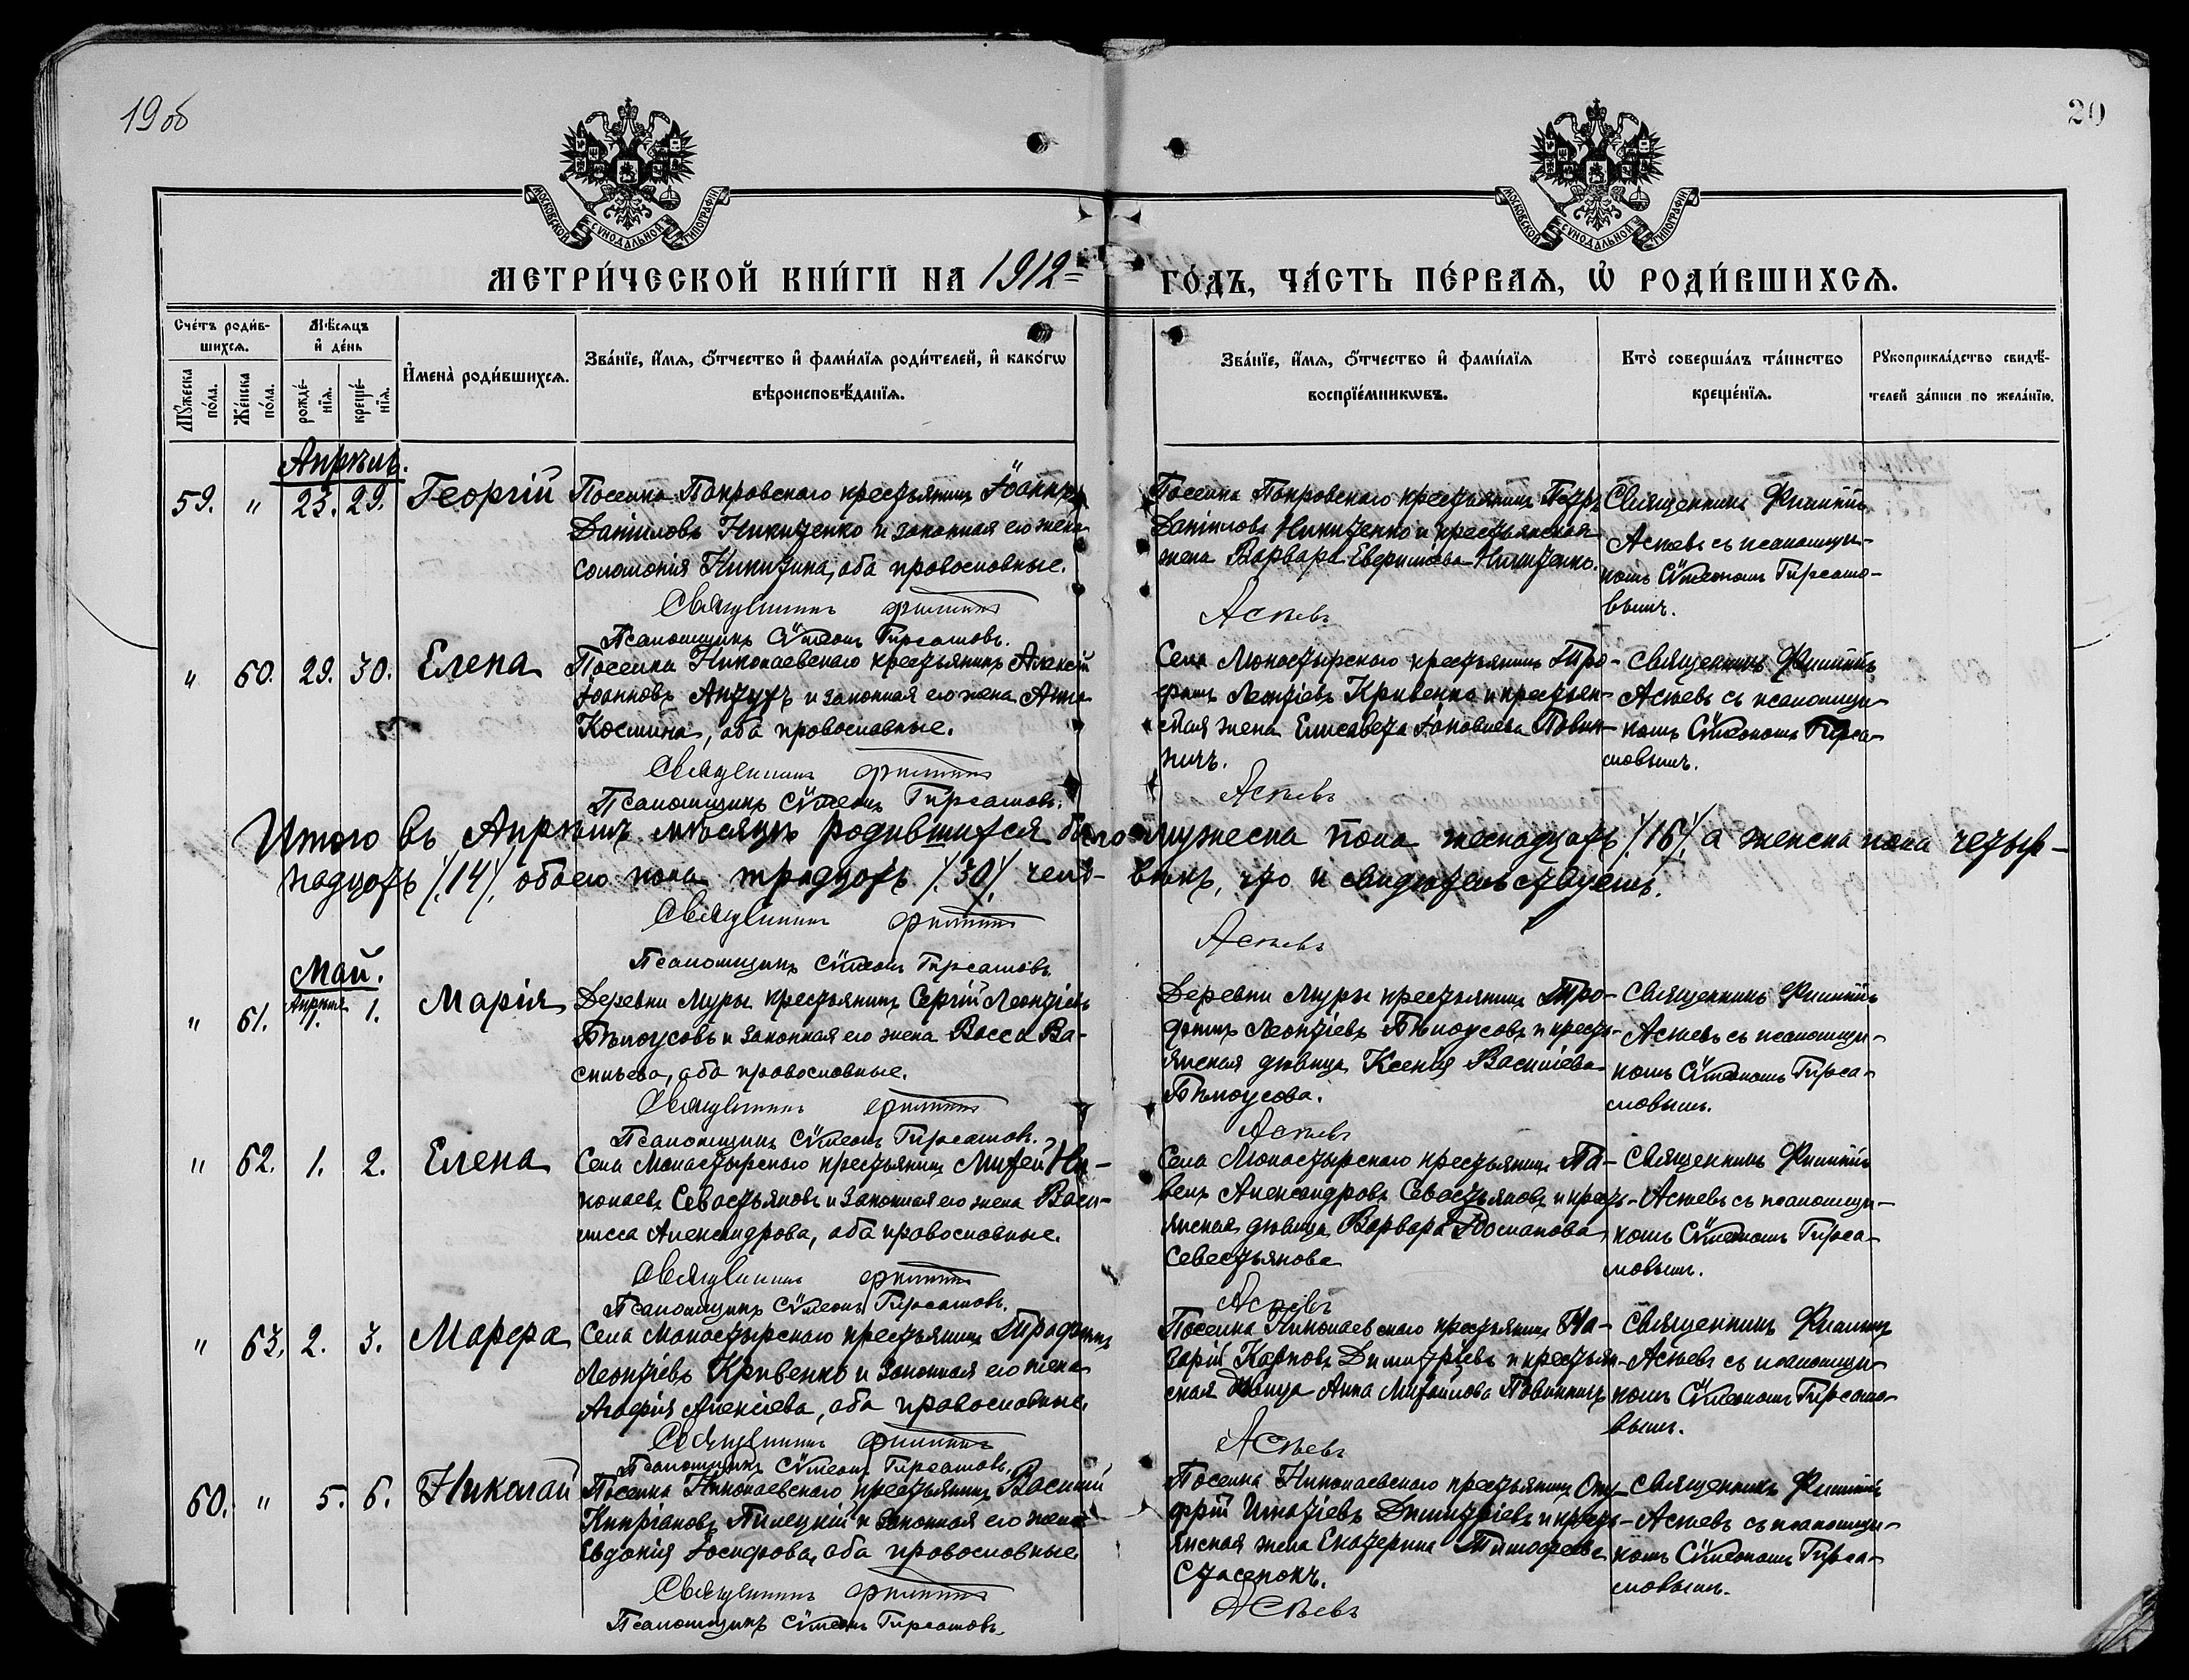 19 об
20
МОСКОВСКОЙ СѴНОДАЛЬНОЙ ТИПОГРАФІИ
МОСКОВСКОЙ СѴНОДАЛЬНОЙ ТИПОГРАФІИ
МЕТРИ́ЧЕСКОЙ КНИ́ГИ НА 1912 ГО́ДЪ, ЧА́СТЬ ПЕ́РВАѦ, Ѽ РОДИ́ВШИХСѦ.
Сче́тъ роди́в-
шихсѧ.
Мѣ́сѧцъ
и҆ де́нь
Мꙋ́жеска
по́ла.
Же́нска
по́ла.
рожде́-
нїѧ.
креще́-
нїѧ.
И҆мена̀ роди́вшихсѧ.
Зва́нїе, и҆́мѧ, ѻ҆́тчество и҆ фами́лїѧ роди́телей, и҆ како́гѡ
вѣроисповѣ́данїѧ.
Зва́нїе, и҆́мѧ, ѻ҆́тчество и҆ фами́лїѧ
воспрїе́мникѡвъ.
Кто̀ соверша́лъ та́инство
креще́нїѧ.
Рꙋкоприкла́дство свидѣ́-
телей за́писи по жела́нїю.
Апрѣль.
59. " 23. 29. Георгій
Поселка Покровскаго крестьянинъ Іоаннъ
Даніиловъ Никитенко и законная его жена
Соломонія Никитина, оба православные.
Священникъ Филиппъ
Псаломщикъ Сѵмеонъ Гирсамовъ.
Поселка Покровскаго крестьянинъ Петръ
Даніиловъ Никитенко и крестьянская
жена Варвара Никитенко.
Асѣевъ
Священникъ Филиппъ
Асѣевъ съ псаломщи-
комъ Сѵмеономъ Гирсамо-
вымъ.
" 60. 29. 30. Елена
Поселка Николаевскаго крестьянинъ Алексій
Іоанновъ и законная его жена Анна
Космина, оба православные.
Священникъ Филиппъ
Псаломщикъ Сѵмеонъ Гирсамовъ.
Села Монастырскаго крестьянинъ Тро-
фимъ Леонтіевъ Кривенко и крестьян-
ская жена Елисавета Іаковлева Повин-
ничъ.
Асѣевъ
Священникъ Филиппъ
Асѣевъ съ псаломщи-
комъ Сѵмеономъ Гирса-
мовымъ.
Итого въ Апрѣлѣ мѣсяцѣ родившихся было мужеска пола шеснадцать /16/, а женска пола четыр-
надцать /14/, обоего пола тридцать /30/ чело- вѣкъ, что и свидѣтельствуемъ.
Священникъ Филиппъ Асѣевъ
Псаломщикъ Сѵмеонъ Гирсамовъ
Май.
Апрѣля
" 61. 1. 1. Марія
Деревни Муры крестьянинъ Сергій Леонтіевъ
Бѣлоусовъ и законная его жена Васса Ва-
сильева, оба православные.
Священникъ Филиппъ
Псаломщикъ Сѵмеонъ Гирсамовъ.
Деревни Муры крестьянинъ Тро-
фимъ Леонтіевъ Бѣлоусовъ и кресть-
янская дѣвица Ксенія Василіева
Бѣлоусова.
Асѣевъ
Священникъ Филиппъ
Асѣевъ съ псаломщи-
комъ Сѵмеономъ Гирса-
мовымъ.
" 62. 1. 2. Елена
Села Монастырскаго крестьянинъ Ни-
колаевъ Севастьяновъ и законная его жена Васи-
лисса Александрова, оба православные.
Священникъ Филиппъ
Псаломщикъ Сѵмеонъ Гирсамовъ.
Села Монастырскаго крестьянинъ Па-
велъ Александровъ Севастьяновъ и кресть-
янская дѣвица Варвара Романова
Севестьянова
Асѣевъ
Священникъ Филиппъ
Асѣевъ съ псаломщи-
комъ Сѵмеономъ Гирса-
мовымъ.
" 63. 2. 3. Марѳа
Села Монастырскаго крестьянинъ Трофимъ
Леонтіевъ Кривенко и законная его жена
Агафія Алексіева, оба православные.
Священникъ Филиппъ
Псаломщикъ Сѵмеонъ Гирсамовъ.
Поселка Николаевскаго крестьянинъ На-
зарій Карповъ Димитріевъ и крестьян-
ская дѣвица Анна Михайлова Повинничъ
Асѣевъ
Священникъ Филиппъ
Асѣевъ съ псаломщи-
комъ Сѵмеономъ Гирсамо-
вымъ.
60. " 5. 6. Николай
Поселка Николаевскаго крестьянинъ Василій
Кипріановъ Пилецкій и законная его жена
Евдокія Іосифова, оба православные.
Священникъ Филиппъ
Псаломщикъ Сѵмеонъ Гирсамовъ.
Поселка Николаевскаго крестьянинъ Ону-
фрій Игнатіевъ Димитріевъ и кресть-
янская жена Екатерина Тимофеева
Стасенокъ.
Асѣевъ
Священникъ Филиппъ
Асѣевъ съ псаломщи-
комъ Сѵмеономъ Гирса-
мовымъ.